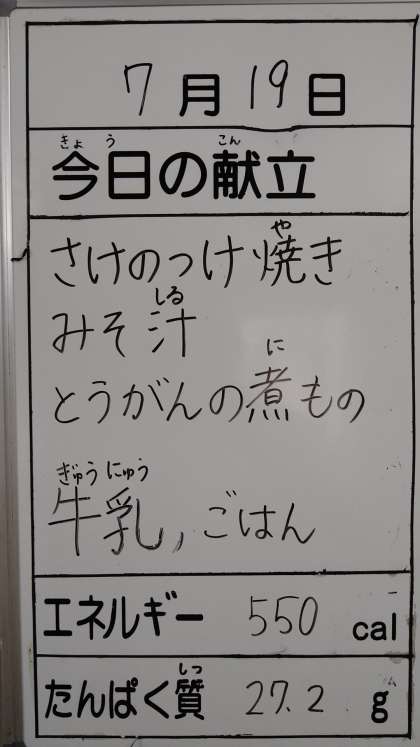 7月19日
きょう こん
今日の献立
や
さけのつけ焼き
しる
みそ汁
に
とうがんの煮もの
ぎゅうにゅう
牛乳, ごはん
エネルギー 550 cal
しつ
たんぱく質 27.2 g